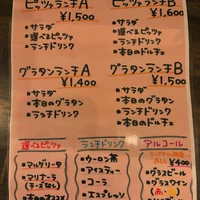 ピッツァランチA
¥1,500
・サラダ
・選べるピッツァ
・ランチドリンク
ピッツァランチB
¥1,600
・サラダ
・選べるピッツァ
・ランチドリンク
・本日のドルチェ
グラタンランチA
¥1,400
・サラダ
・本日のグラタン
・ランチドリンク
グラタンランチB
¥1,500
・サラダ
・本日のグラタン
・ランチドリンク
・本日のドルチェ
選べるピッツァ
・マルゲリータ
・マリナーラ
(チーズなし)
・本日のオススメ
ランチドリンク
・ウーロン茶
・アイスティー
・コーラ
・エスプレッソ
アルコール
All ¥400
・グラスビール
・グラスワイン
(赤・白)